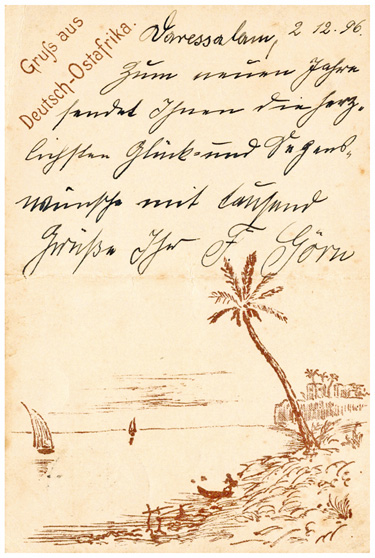 Gruſs aus
Deutsch-Ostafrika.
Daressalam, 2 12. 96.
Zum neuen Jahre
sendet Ihnen die herz-
lichsten Glück- und Segens-
wünsche mit tausend
Grüße Ihr F. Görn